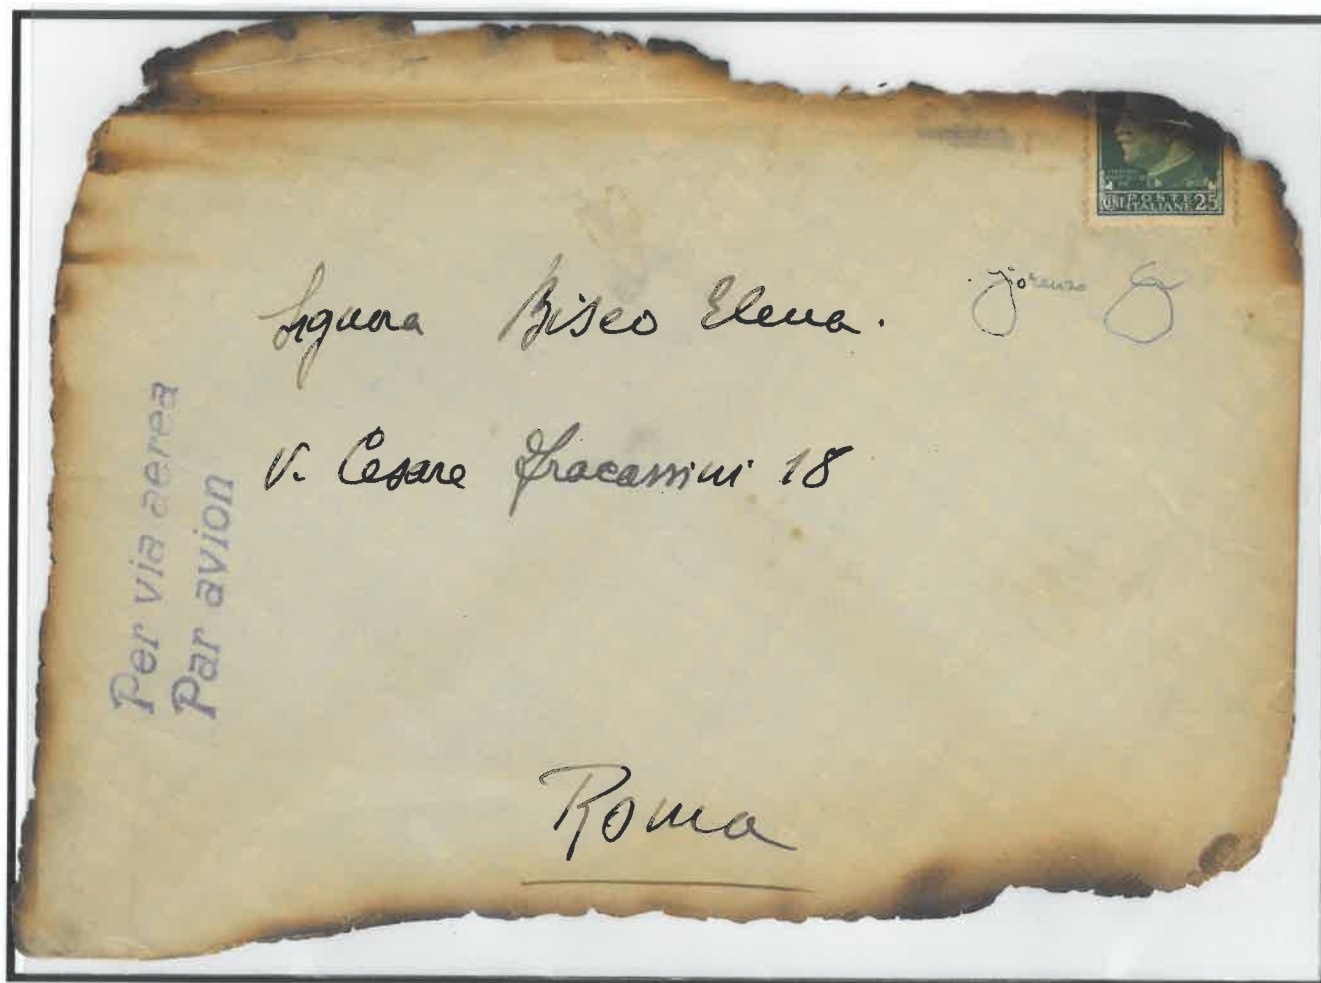 CENT. POSTE ITALIANE 25
Signora Biseo Elena.
V. Cesare Fracassini 18
Per via aerea
Par avion
Roma